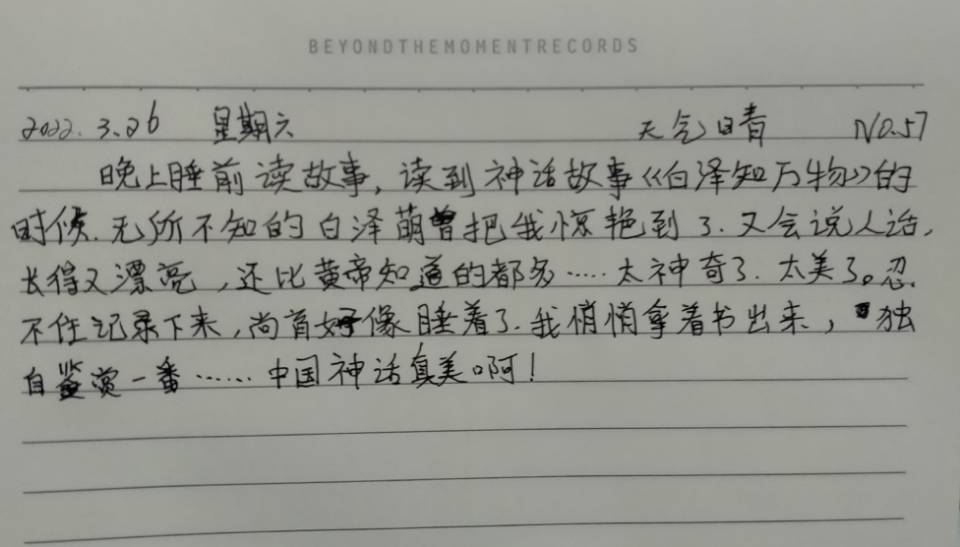 BEYONDTHEMOMENTRECORDS
2022.3.26 星期六 天气晴 NO.57
晚上睡前读故事，读到神话故事《白泽知万物》的
时候.无所不知的白泽萌兽把我惊艳到了.又会说人话，
长得又漂亮，还比黄帝知道的都多……太神奇了.太美了。忍
不住记录下来，尚首好像睡着了.我悄悄拿着书出来，独
自鉴赏一番……中国神话真美啊！